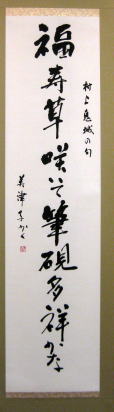 村上鬼城の句
福寿草咲いて筆硯多祥かな
美津子かく